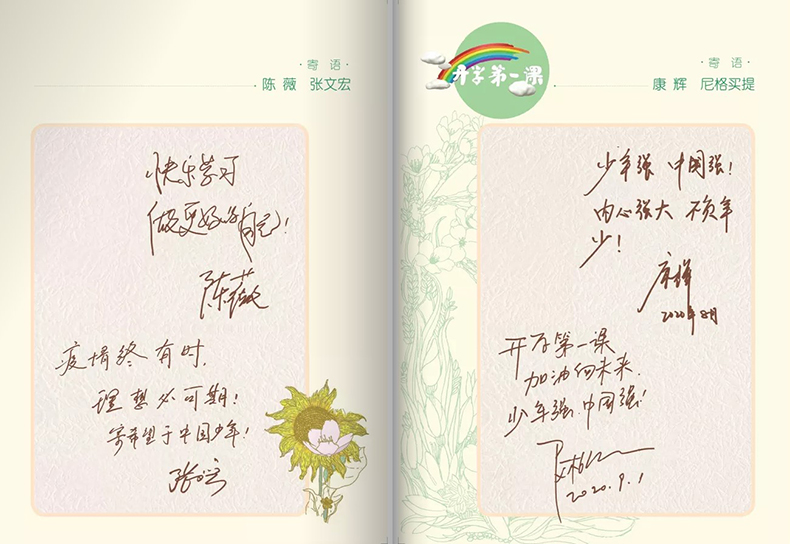 ·寄语·
陈薇 张文宏
快乐学习
做更好的自己!
陈薇
疫情终有时,
理想必可期!
寄希望于中国少年!
张文宏
开学第一课
·寄语·
康辉 尼格买提
少年强 中国强!
内心强大 不负年
少!
康辉
2020年8月
开学第一课
加油向未来.
少年强 中国强!
2020.9.1